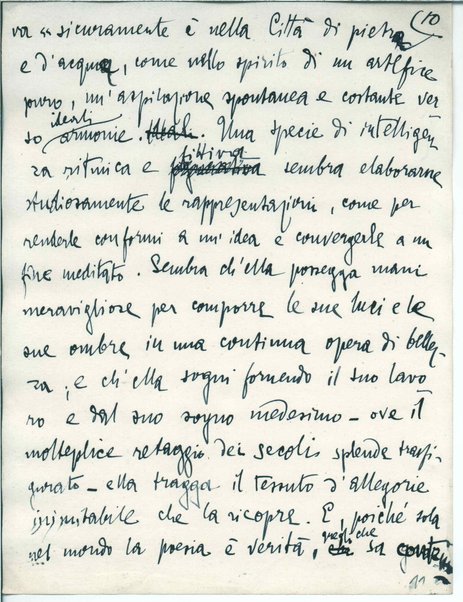 10
va « sicuramente è nella Città di pietra
e d'acqua, come nello spirito di un artefice
puro, un'aspirazione spontanea e costante ver
so ideali armonie. Ideali. Una specie di intelligen
za ritmica e fittiva sembra elaborarne
studiosamente le rappresentazioni, come per
renderle conformi a un'idea e convergerle a un
fine meditato. Sembra ch'ella possegga mani
meravigliose per comporre le sue luci e le
sue ombre in una continua opera di bellez-
za, e ch'ella sogni fornendo il suo lavo
ro e dal suo sogno medesimo – ove il
molteplice retaggio dei secoli splende trasfi-
gurato – ella tragga il tessuto d'allegorie
inimitabile che la ricopre. E, poiché sola
nel mondo la poesia è verità, quegli che sa
11